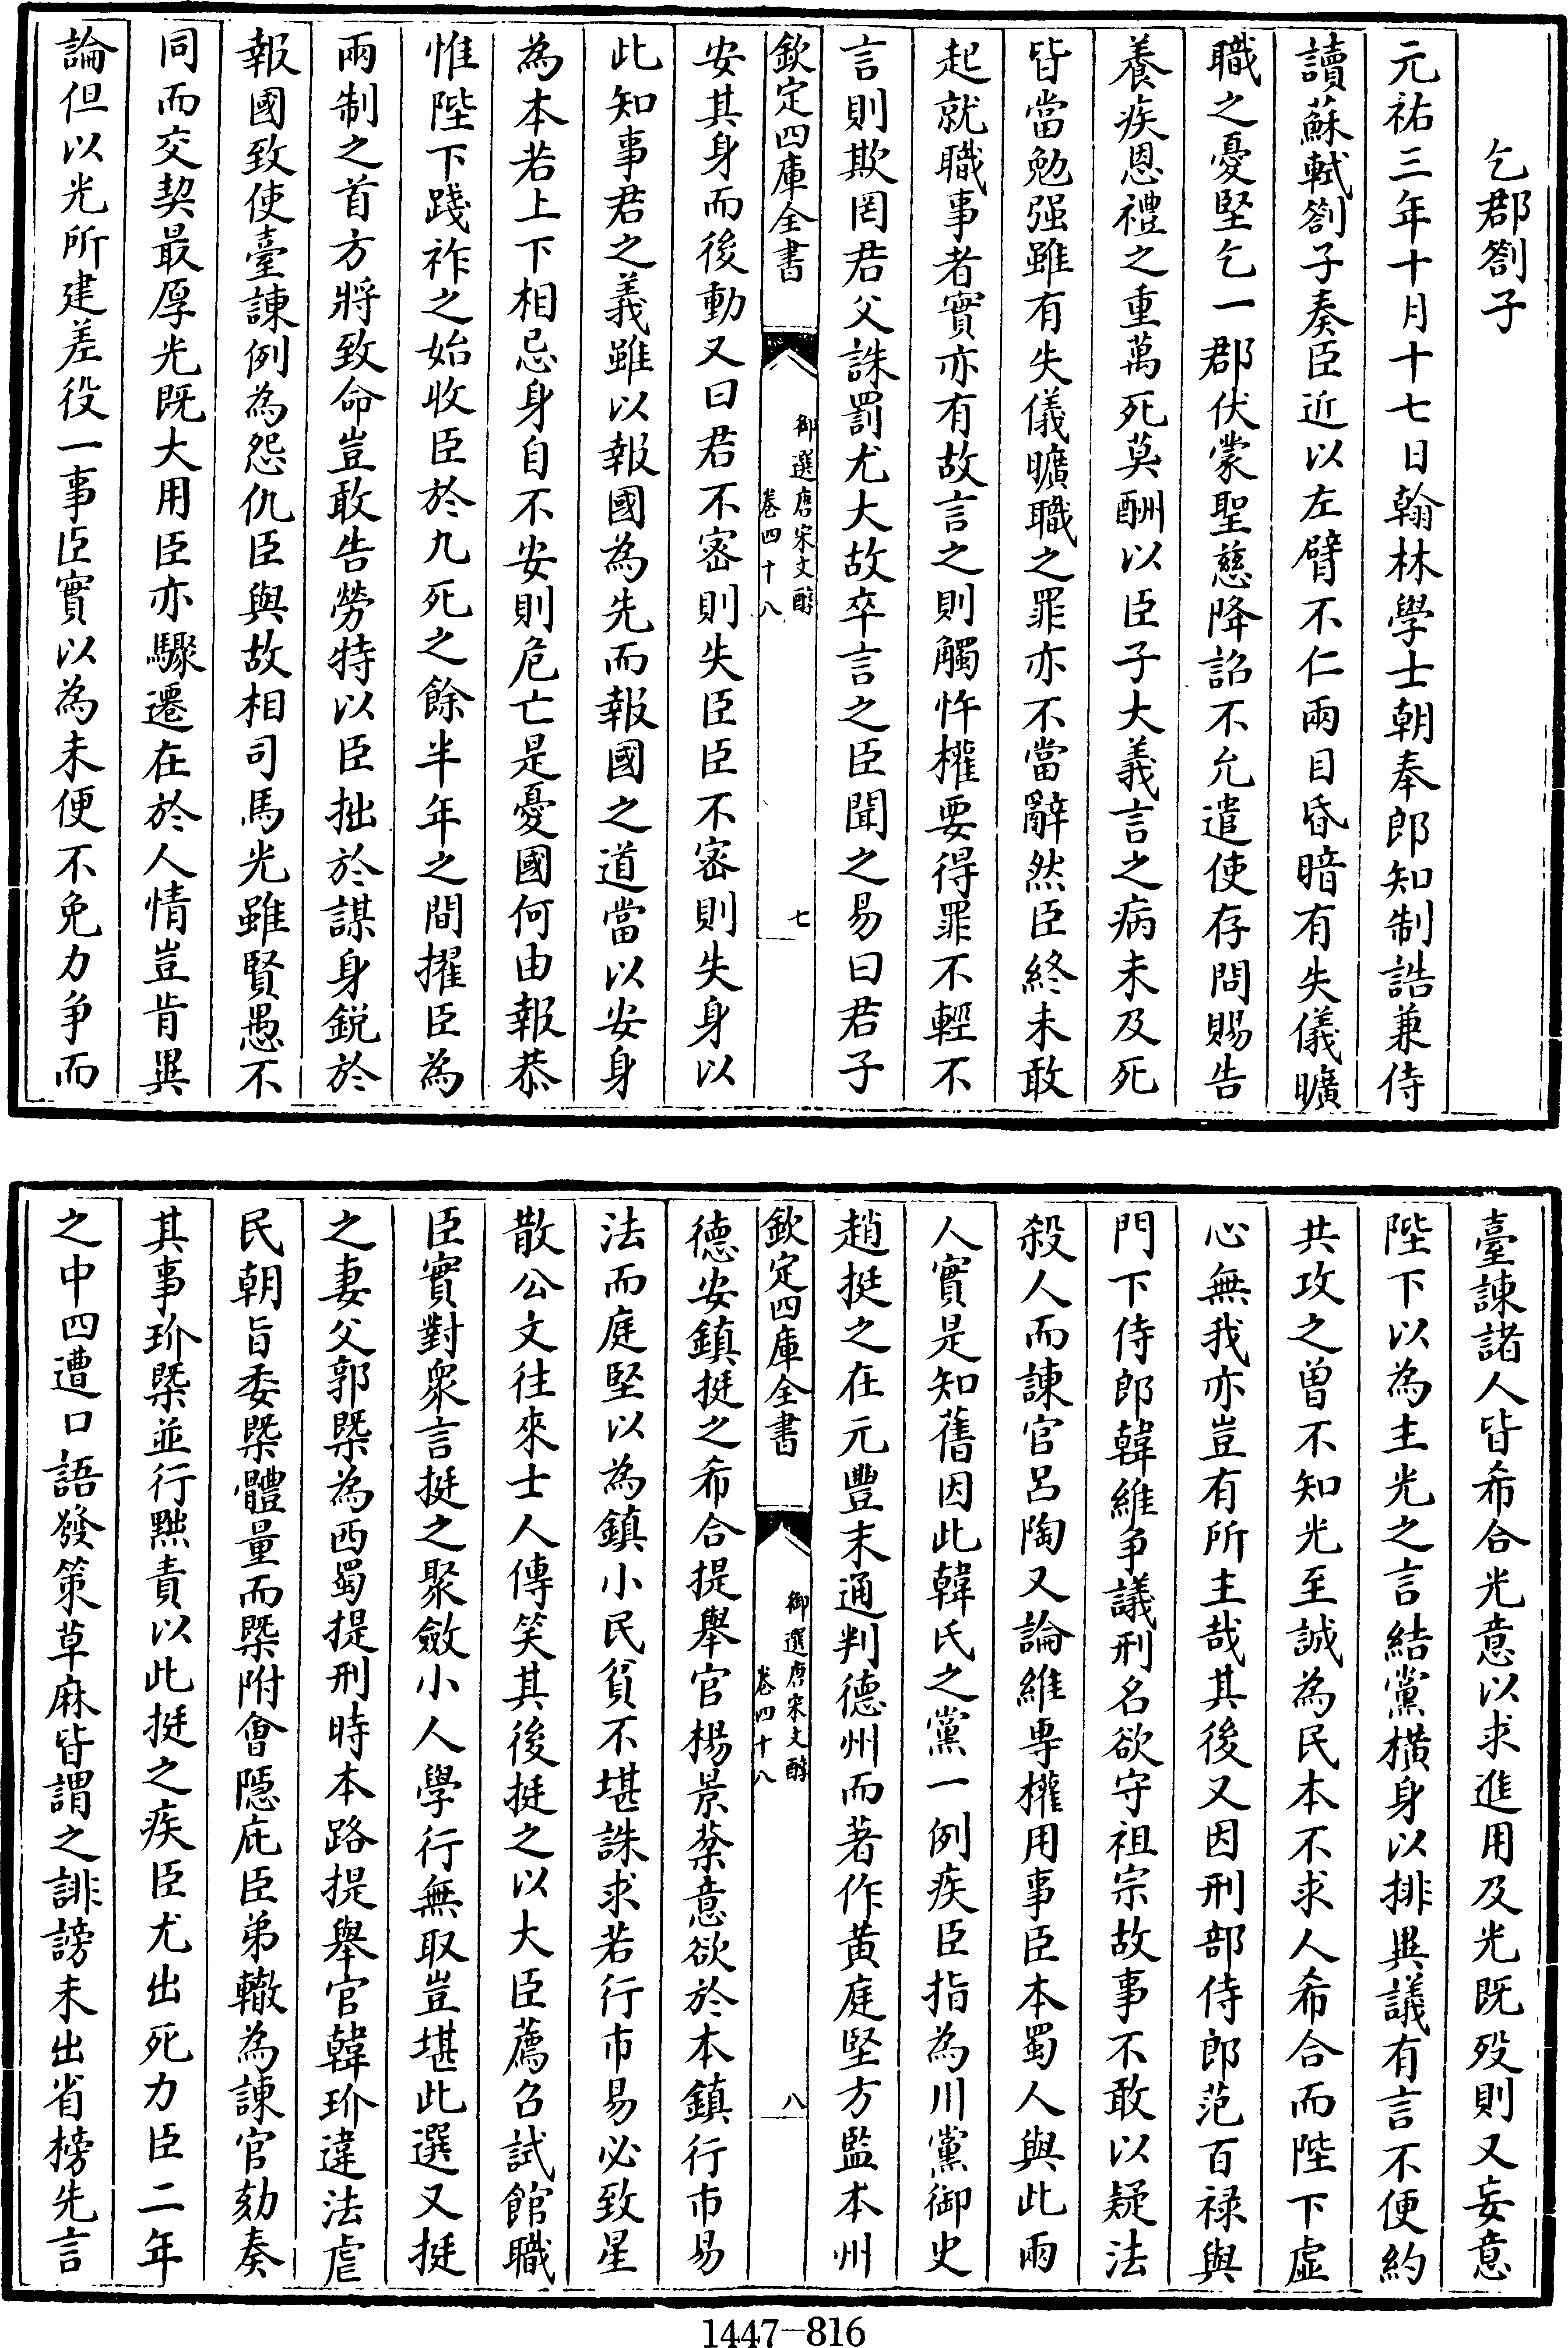 乞郡劄子
元祐三年十月十七日翰林學士朝奉郎知制誥兼侍
讀蘇軾劄子奏臣近以左臂不仁兩目昏暗有失儀曠
職之憂堅乞一郡伏蒙聖慈降詔不允遣使存問賜告
養疾恩禮之重萬死莫酬以臣子大義言之病未及死
皆當勉强雖有失儀曠職之罪亦不當辭然臣終未敢
起就職事者實亦有故言之則觸忤權要得罪不輕不
言則欺罔君父誅罰尤大故卒言之臣聞之易曰君子
欽定四庫全書
御選唐宋文醇
卷四十八
七
安其身而後動又曰君不密則失臣臣不密則失身以
此知事君之義雖以報國為先而報國之道當以安身
為本若上下相忌身自不安則危亡是憂國何由報恭
惟陛下踐祚之始收臣於九死之餘半年之間擢臣為
兩制之首方將致命豈敢告勞特以臣拙於謀身銳於
報國致使臺諫例為怨仇臣與故相司馬光雖賢愚不
同而交契最厚光既大用臣亦驟遷在於人情豈肯異
論但以光所建差役一事臣實以為未便不免力爭而
臺諫諸人皆希合光意以求進用及光既歿則又妄意
陛下以為主光之言結黨橫身以排異議有言不便約
共攻之曾不知光至誠為民本不求人希合而陛下虛
心無我亦豈有所主哉其後又因刑部侍郎范百祿與
門下侍郎韓維爭議刑名欲守祖宗故事不敢以疑法
殺人而諫官呂陶又論維專權用事臣本蜀人與此兩
人實是知舊因此韓氏之黨一例疾臣指為川黨御史
趙挺之在元豐末通判德州而著作黃庭堅方監本州
欽定四庫全書
御選唐宋文醇
卷四十八
八
德安鎮挺之希合提舉官楊景棻意欲於本鎮行市易
法而庭堅以為鎮小民貧不堪誅求若行市易必致星
散公文往來士人傳笑其後挺之以大臣薦召試館職
臣實對衆言挺之聚斂小人學行無取豈堪此選又挺
之妻父郭槩為西蜀提刑時本路提舉官韓玠違法虐
民朝旨委槩體量而槩附會隱庇臣弟轍為諫官劾奏
其事玠槩並行黜責以此挺之疾臣尤出死力臣二年
之中四遭口語發策草麻皆謂之誹謗未出省榜先言
1447—816